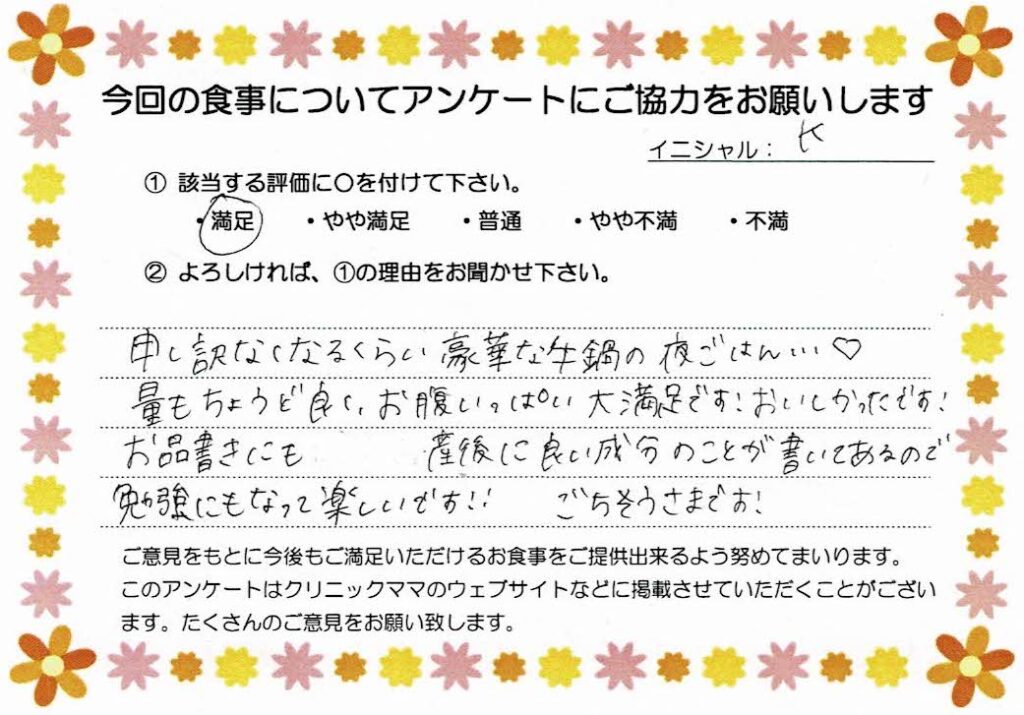 今回の食事についてアンケートにご協力をお願いします
イニシャル： K
① 該当する評価に〇を付けて下さい。
・満足 ・やや満足 ・普通 ・やや不満 ・不満
② よろしければ、①の理由をお聞かせ下さい。
申し訳なくなるくらい豪華な牛鍋の夜ごはん…♡
量もちょうど良く、お腹いっぱい大満足です!おいしかったです!
お品書きにも 産後に良い成分のことが書いてあるので
勉強にもなって楽しいです!! ごちそうさまです!
ご意見をもとに今後もご満足いただけるお食事をご提供出来るよう努めてまいります。
このアンケートはクリニックママのウェブサイトなどに掲載させていただくことがござい
ます。たくさんのご意見をお願い致します。